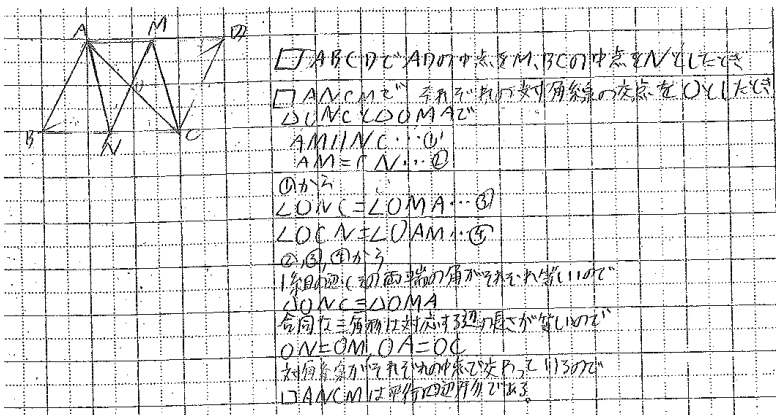 A M D
O
B N C
▱ABCDでADの中点をM、BCの中点をNとしたとき
□ANCMで それぞれの対角線の交点をOとしたとき
△ONCと△OMAで
AM//NC…①
AM=CN…②
①から
∠ONC=∠OMA…③
∠OCN=∠OAM…④
②,③,④から
1組の辺とその両端の角がそれぞれ等しいので
△ONC≡△OMA
合同な三角形は対応する辺の長さが等しいので
ON=OM,OA=OC
対角線がそれぞれの中点で交わっているので
□ANCMは平行四辺形である